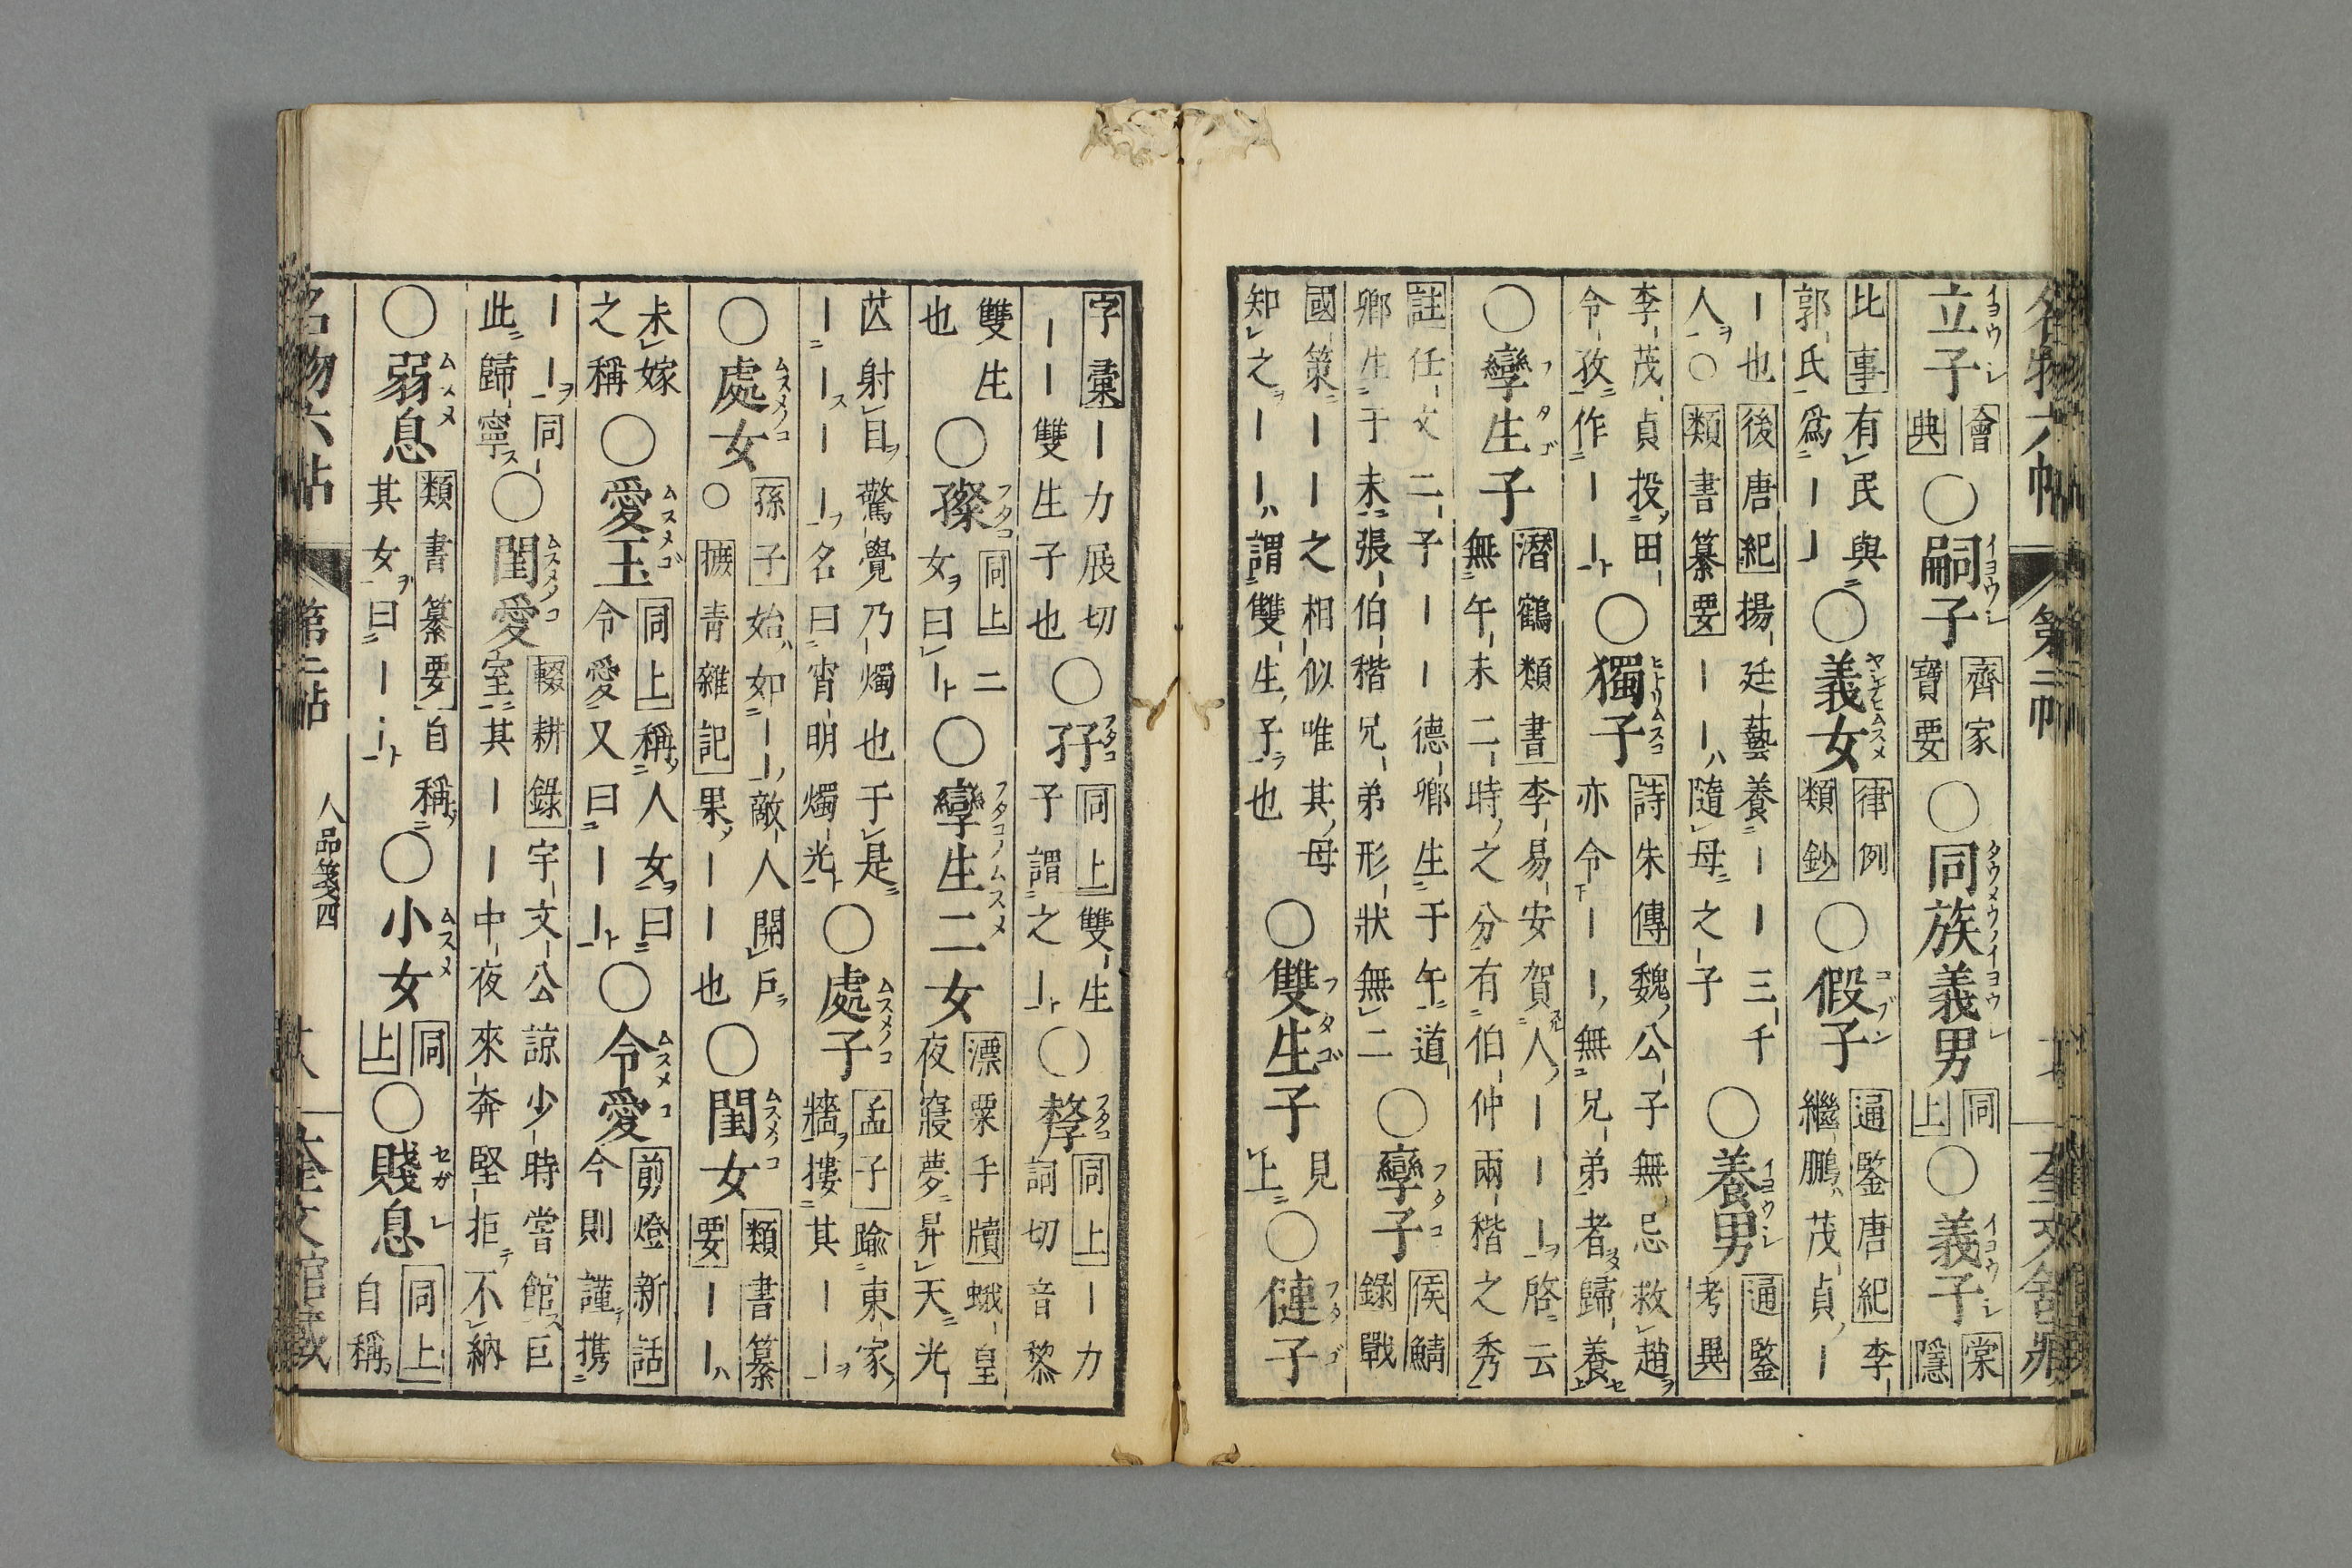 名物六帖 第二帖 奎文館藏
立子 會典 ○嗣子 齊家寶要 ○同族義男 同上 ○義子 棠隱
比事有民與郭氏爲ーー ○義女 律例類鈔 ○假子 通鑒唐紀李繼鵬茂貞ー
ー也 後唐紀 揚廷藝養ーー三千人○類書纂要ーー隨母之子 ○養男 通鑒考異
李茂貞投田令孜作ーー ○獨子 詩朱傳 魏公子無忌救趙亦令ーー無兄弟者歸養
○孿生子 潛鶴類書 李易安賀人ーーー啓云無午未二時之分有伯仲兩楷之秀
註任文二子ーー德卿生于午道卿生于未張伯楷兄弟形狀無二 ○孿子 侯鯖錄戰
國策ーー之相似唯其母知之ーー謂雙生子也 ○雙生子 見上 ○僆子
字彙ー力展切ーー雙生子也 ○孖 同上 雙生子謂之ー ○孷 同上 ー力詞切音黎
雙生也 ○㜗 同上 二女曰ー ○孿生二女 漂粟手牘 蛾皇夜寢夢昇天光ー
苡射目驚覺乃燭也于是ーーーー名曰宵明燭光 ○處子 孟子 踰東家牆摟其ーー
○處女 孫子 始如ーー敵人開戶○摭青雜記 果ーー也 ○閨女 類書纂要ーー
未嫁之稱 ○愛玉 同上 稱人女曰令愛又曰ーー ○令愛 剪燈新話 今則謹携
ーー同此歸寧 ○閨愛 輟耕錄 宇文公諒少時嘗館巨室其ーー中夜來奔堅拒不納
○弱息 類書纂要 自稱其女曰ーー ○小女 同上 ○賤息 同上 自稱
名物六帖 第二帖 人品箋四 奎文館藏